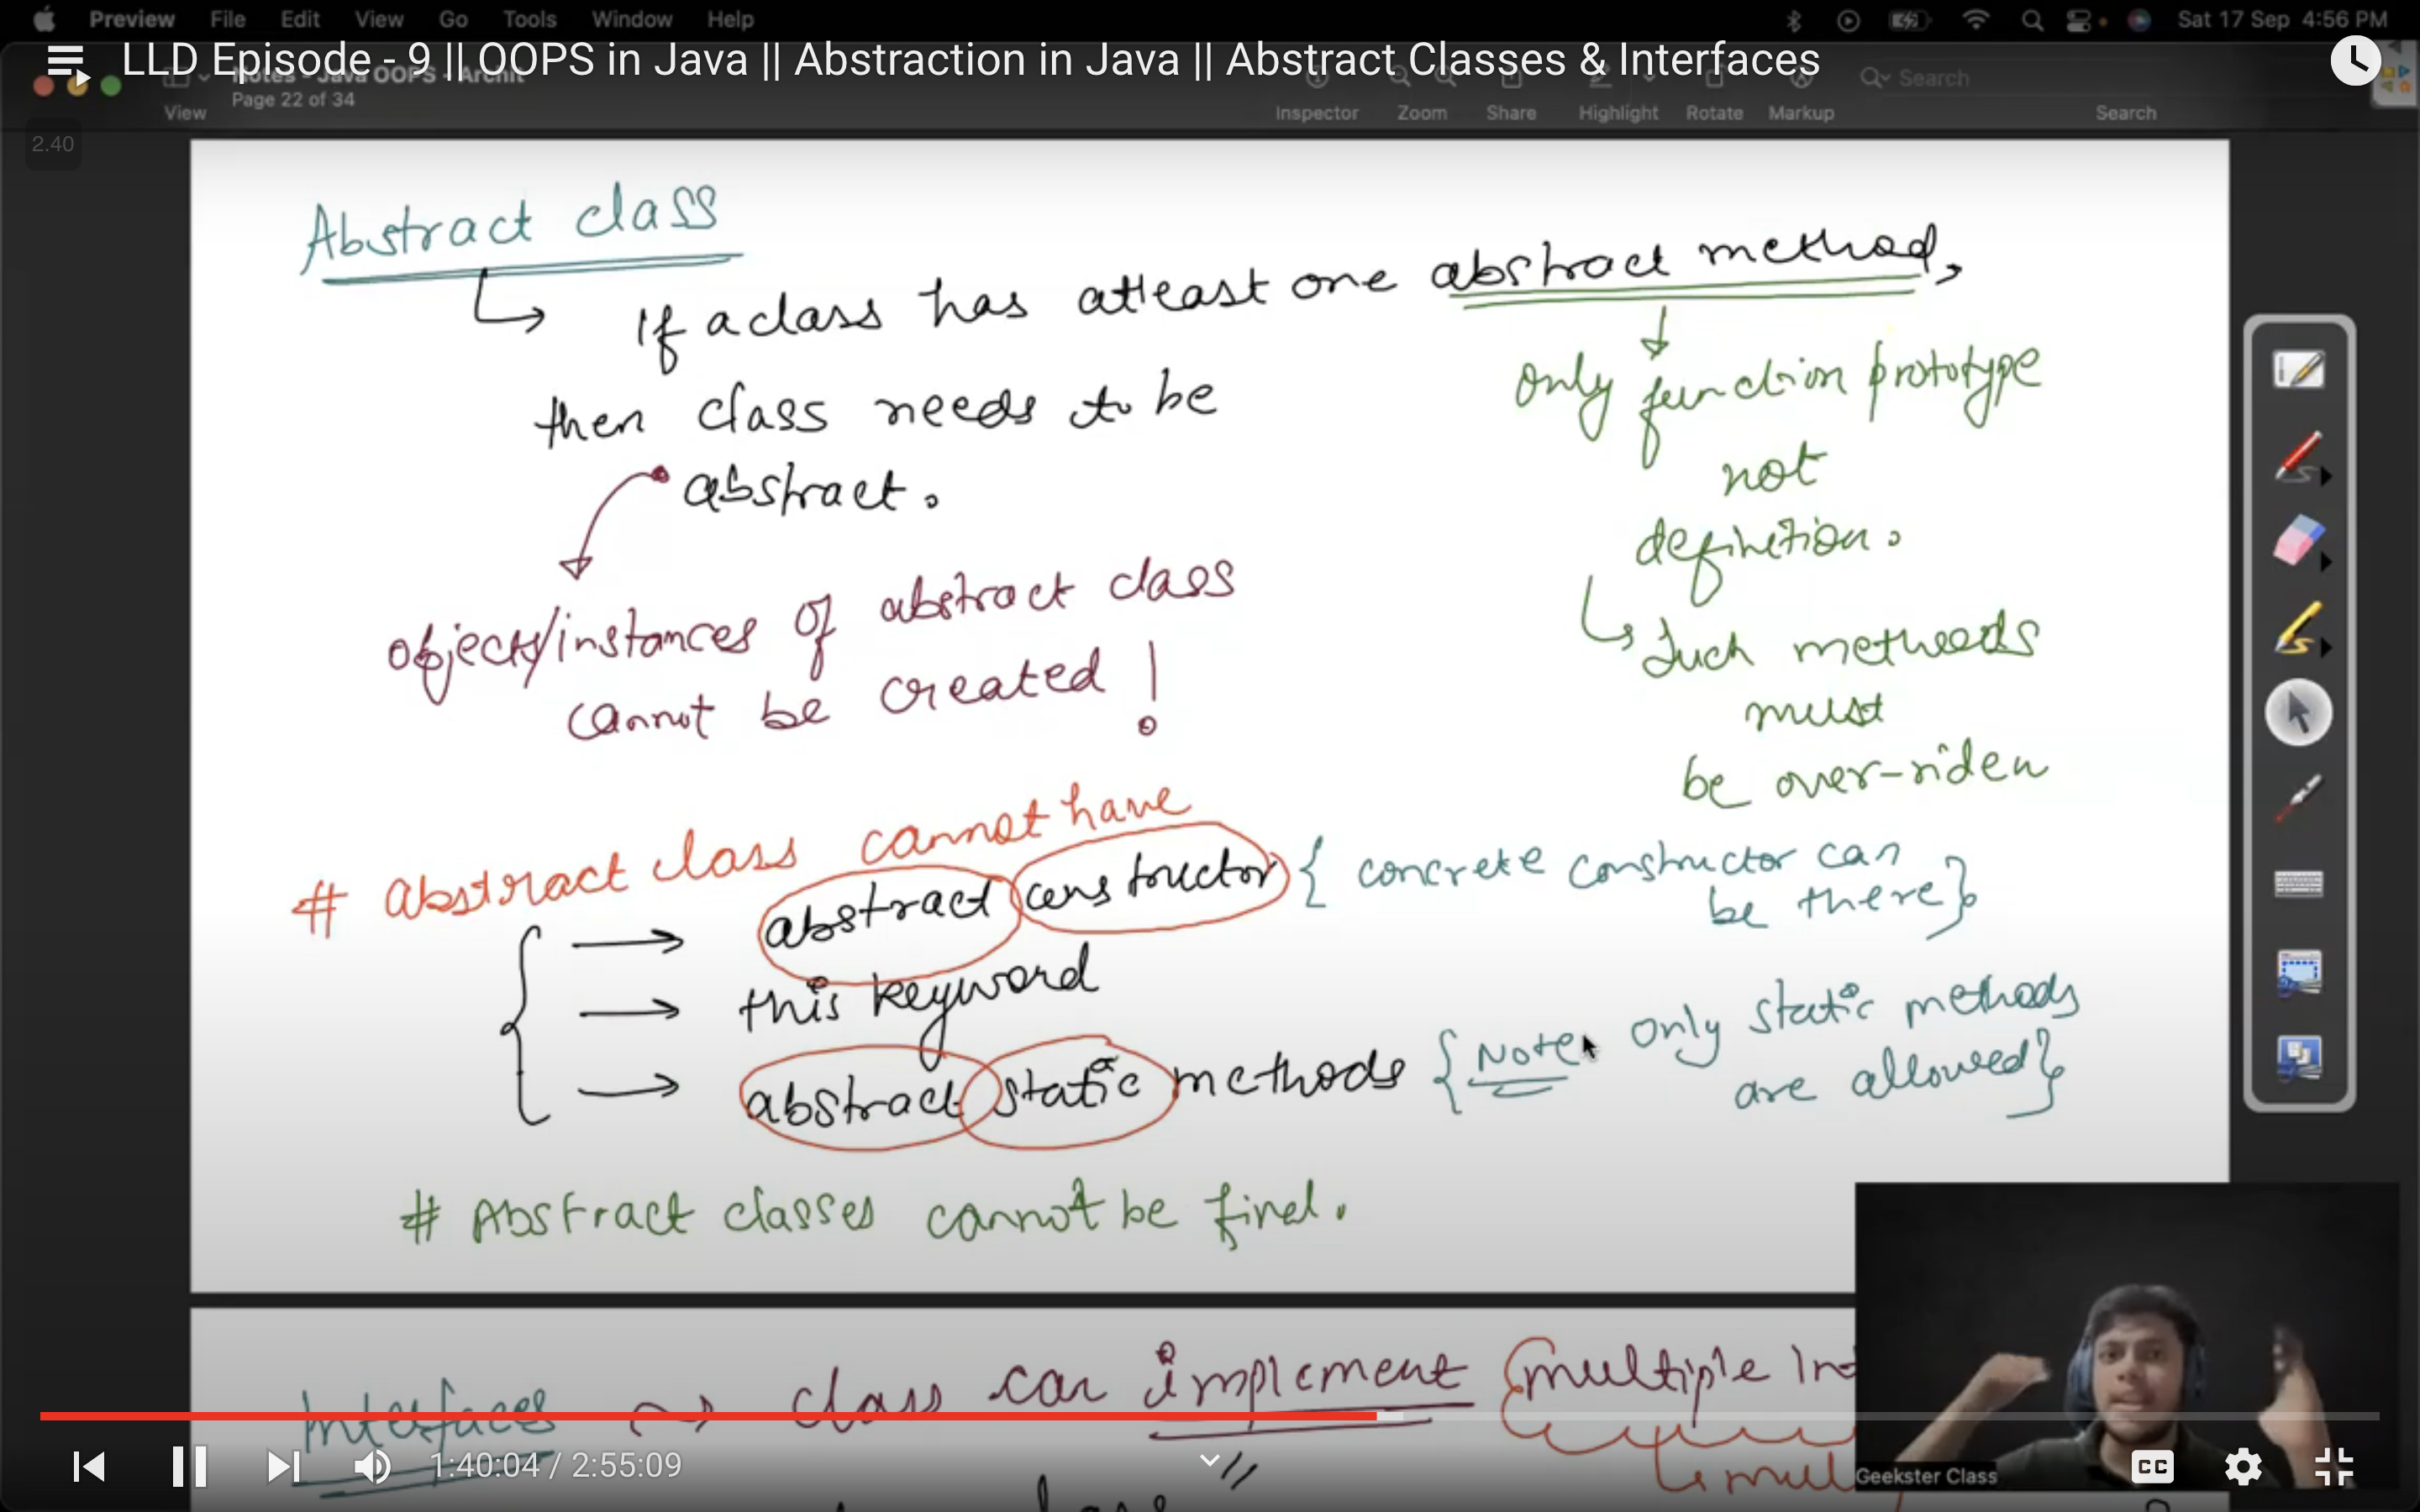 Preview File Edit View Go Tools Window Help Sat 17 Sep 4:56 PM
LLD Episode - 9 || OOPS in Java || Abstraction in Java || Abstract Classes & Interfaces
Notes - Java OOPS - Archit
Page 22 of 34
Search
View Inspector Zoom Share Highlight Rotate Markup Search
2.40
Abstract class
If a class has atleast one abstract method,
then class needs to be
abstract.
only function prototype
not
definition.
Such methods
must
be over-riden
objects/instances of abstract class
cannot be created !
# Abstract class cannot have
abstract constructor { concrete constructor can
be there }
this keyword
abstract static methods { Note: only static methods
are allowed }
# Abstract classes cannot be final.
Interfaces class can implement multiple
Geekster Class
1:40:04 / 2:55:09
CC